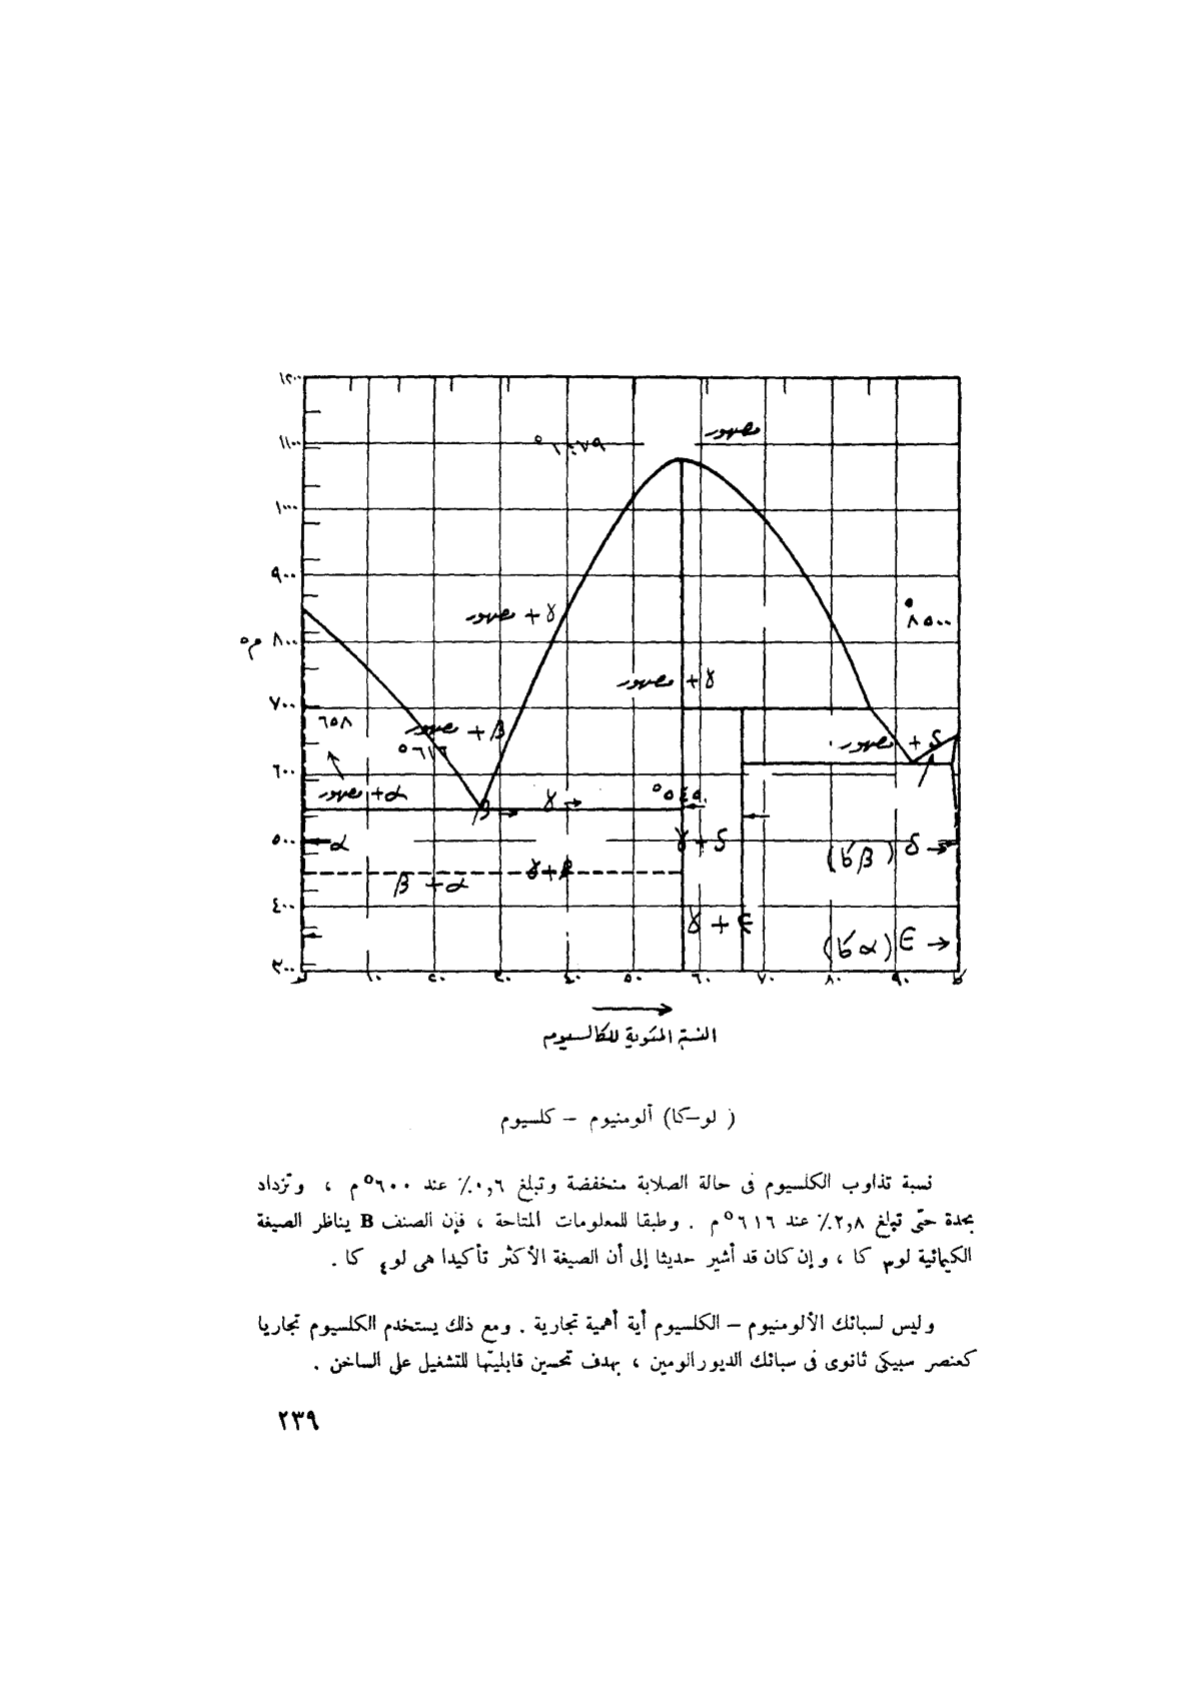 ١٢٠٠
١١٠٠
مصهور
١٠٠٠
٩٠٠
مصهور + γ
٨٥٠٠
م° ٨٠٠
مصهور + γ
٧٠٠
٦٥٨
مصهور + β
°٦١٦
مصهور + δ
٦٠٠
مصهور + α
β → γ →
٥٠٠
α
γ + δ
(كا β) δ →
β + α
γ + β
٤٠٠
γ + ε
(كا α) ε →
٣٠٠
لو ١٠ ٢٠ ٣٠ ٤٠ ٥٠ ٦٠ ٧٠ ٨٠ ٩٠ كا
النسبة المئوية للكالسيوم
( لو–كا) ألومنيوم – كلسيوم
نسبة تذاوب الكلسيوم فى حالة الصلابة منخفضة وتبلغ ٠,٦٪ عند ٦٠٠°م ، وتزداد
بحدة حتى تبلغ ٢,٨٪ عند ٦١٦°م . وطبقا للمعلومات المتاحة ، فإن الصنف B يناظر الصيغة
الكيمائية لو٣ كا ، وإن كان قد أشير حديثا إلى أن الصيغة الأكثر تأكيدا هى لو٤ كا .
وليس لسبائك الألومنيوم – الكلسيوم أية أهمية تجارية . ومع ذلك يستخدم الكلسيوم تجاريا
كعنصر سبيكى ثانوى فى سبائك الديورالومين ، بهدف تحسين قابليتها للتشغيل على الساخن .
٢٣٩